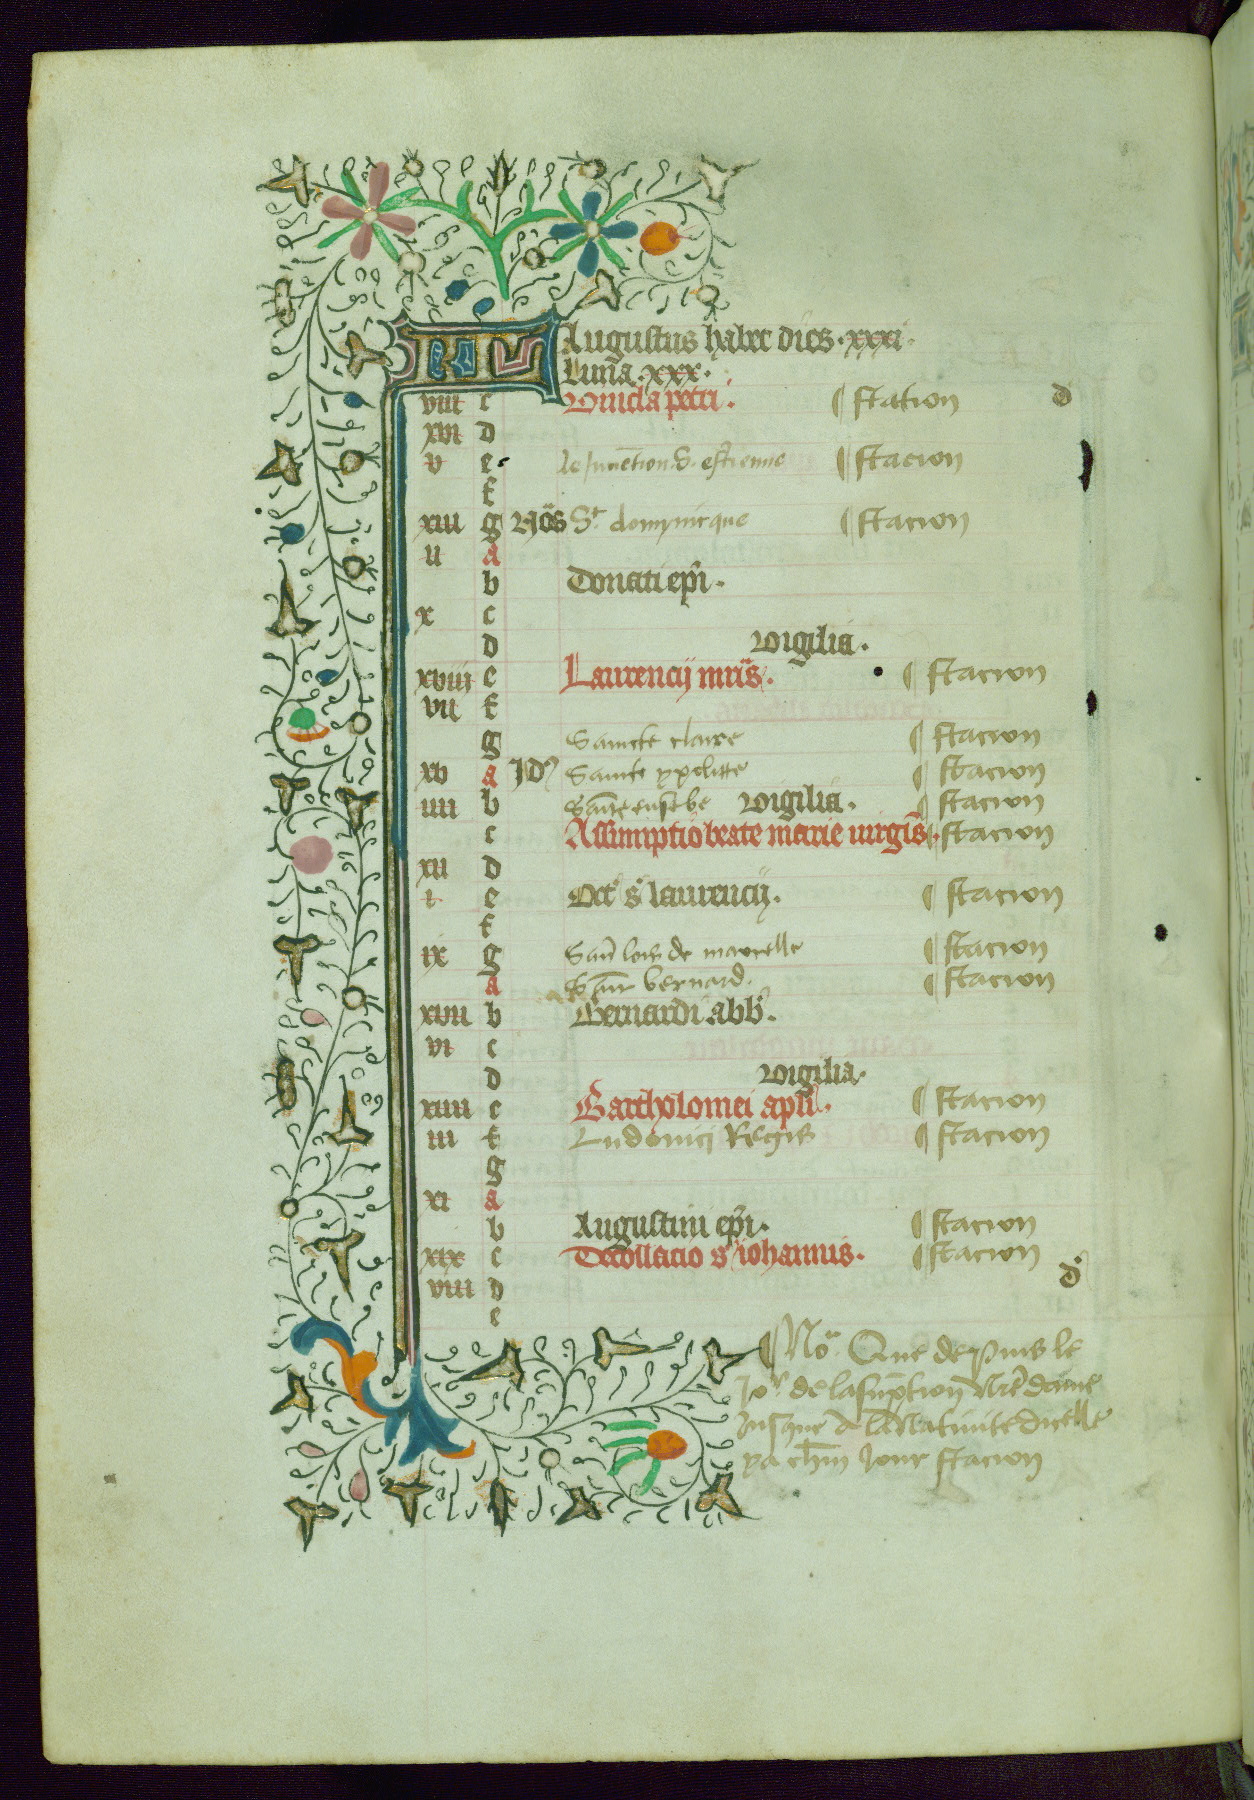 KL Augustus habet dies. xxxi.
Luna. xxx.
viii c Vincla petri. ¶ Station d
xvi d
v e le Juuẽtion. S. estienne ¶ stacion
f
xiii g Nõs St domynicque ¶ stacion
ii a
b Donati epi.
x c
d vigilia.
xviii e Laurencij mris. ¶ stacion
vii f
g Saincte claire ¶ stacion
xv a Jd9 Saincte ypolitte ¶ stacion
iiii b vigilia. ¶ stacion
c Assumptio beate marie uirgis. ¶ stacion
xii d
i e Oct s laurencij. ¶ stacion
f
ix g lois de marcelle ¶ stacion
a bernard. ¶ stacion
xvii b Bernardi abb.
vi c
d vigilia.
xiiii e Bartholomei apli. ¶ stacion
iii f Ludouici Regis ¶ stacion
g
xi a
b Augustini epi. ¶ stacion
xix c Decollacio s iohannis. ¶ stacion d
viii d
e
¶ No Que depuis le
Jor de lasuption nre dame
Jusque a la Natiuite dicelle
ya chun Jour stacion